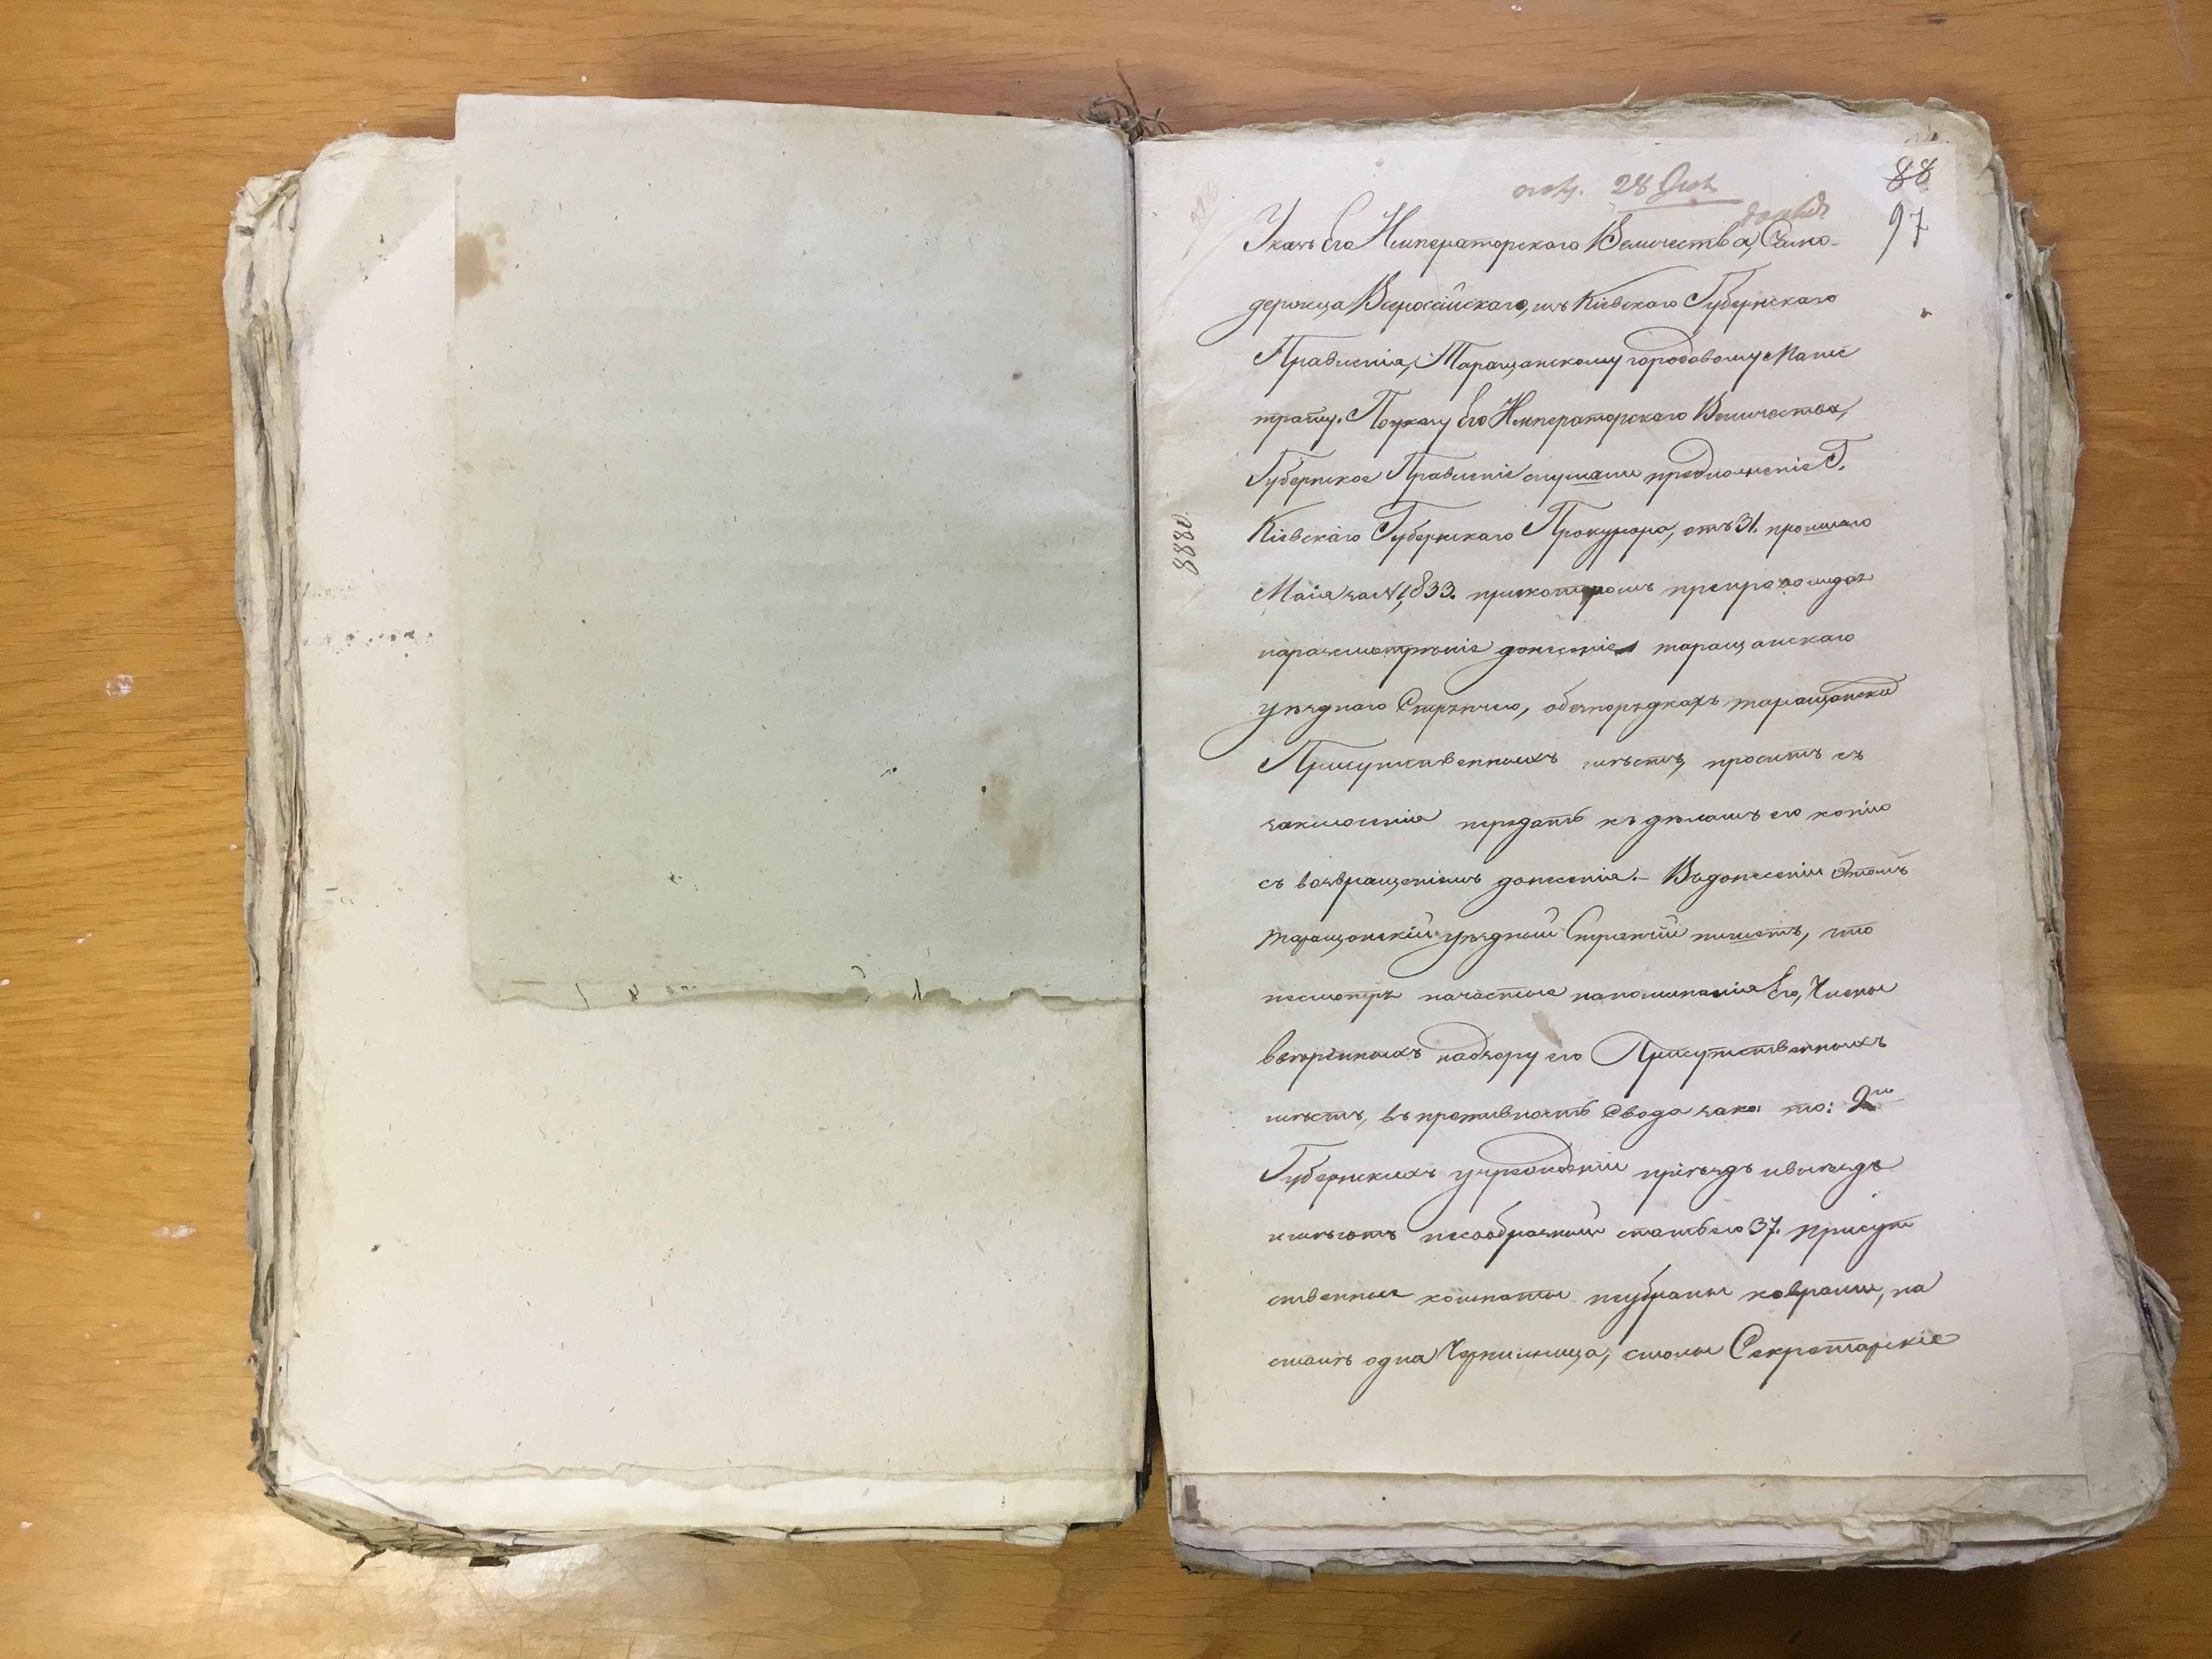 88
28 Июл
97
Указъ Его Императорскаго Величества, Само-
держца Всеросiйскаго, изъ Кiевскаго Губернскаго
Правленiя, Таращанскому городовому Магис
трату. По указу Его Императорскаго Величества,
Губернское Правленiе слушали предложенiе Г.
Кiевскаго Губернскаго Прокурора, отъ 31. прошлаго
Маiя за № 1,833. при которомъ препровождая
на разсмотрѣнiе донесенiе таращанскаго
уѣзднаго Стряпчаго, о безпорядкахъ таращански
Присутственныхъ мѣстъ, проситъ съ
заключенiя передать къ дѣламъ его копiю
съ возвращенiемъ донесенiя.- Въ донесенiи этомъ
таращанскiй уѣздный Стряпчiй пишетъ, что
несмотря на частые напоминанiя Его, Члены
ввѣренныхъ надзору его Присутственныхъ
мѣстъ, въ противность Свода зако: то: 2го
Губернскихъ учрежденiи прiѣздъ и выѣздъ
имѣютъ несообразный статьѣ 37. присут
ственные комнаты неубраны коврами, на
столѣ одна Чернильница, столы Секретарскiе
8880